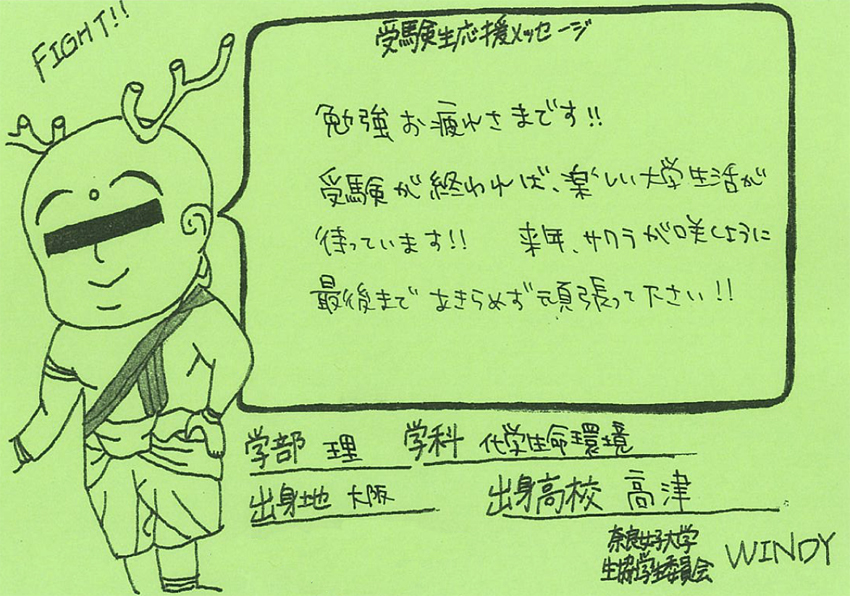 FIGHT!!
受験生応援メッセージ
勉強お疲れさまです!!
受験が終われば、楽しい大学生活が
待っています!! 来年、サクラが咲くように
最後まであきらめず頑張って下さい!!
学部 理 学科 化学生命環境
出身地 大阪 出身高校 高津
奈良女子大学
生協学生委員会 WINDY